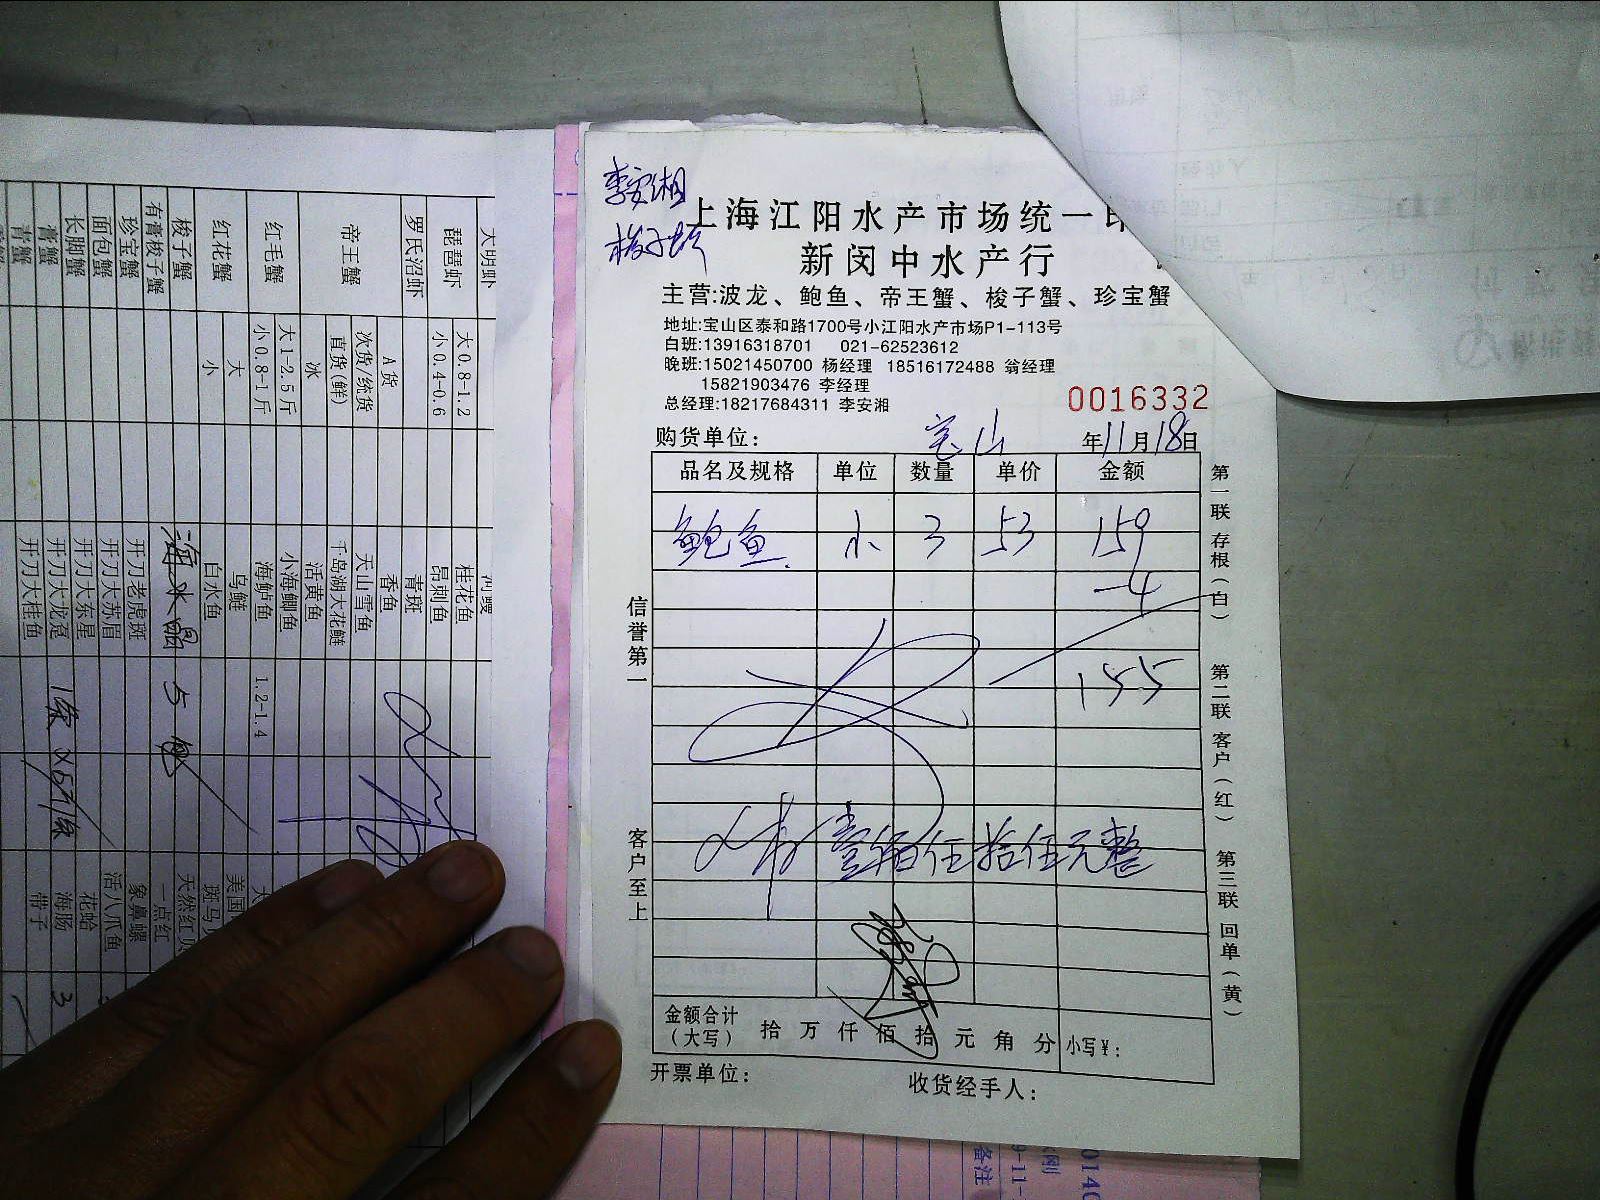 李安湘
梭子蟹
上海江阳水产市场统一
新闵中水产行
主营:波龙、鲍鱼、帝王蟹、梭子蟹、珍宝蟹
地址:宝山区泰和路1700号小江阳水产市场P1-113号
白班:13916318701 021-62523612
晚班:15021450700 杨经理 18516172488 翁经理
15821903476 李经理
总经理:18217684311 李安湘
0016332
购货单位: 宝山 年11月18日
品名及规格 单位 数量 单价 金额
鲍鱼 小 3 53 159
-4
155
壹佰伍拾伍元整
金额合计
(大写) 拾 万 仟 佰 拾 元 角 分 小写¥:
开票单位: 收货经手人:
信誉第一
客户至上
第一联 存根(白) 第二联 客户(红) 第三联 回单(黄)
大明虾
琵琶虾 大0.8-1.2
小0.4-0.6
罗氏沼虾
帝王蟹 A货
次货/统货
直货(鲜)
冰
红毛蟹 大1-2.5斤
小0.8-1斤
红花蟹 大
小
梭子蟹
有膏梭子蟹
珍宝蟹
面包蟹
长脚蟹
膏蟹
青蟹
桂花鱼
昂刺鱼
青斑
香鱼
天山雪鱼
千岛湖大花鲢
活黄鱼
小海鲫鱼
海鲈鱼 1.2-1.4
乌鲢
白水鱼
海水晶 5包
开刀老虎斑
开刀大苏眉
开刀大东星
开刀大龙趸
开刀大桂鱼
美国
斑马
天然红贝
一点红
象鼻螺
活八爪鱼
花蛤
海肠 3
带子
备注